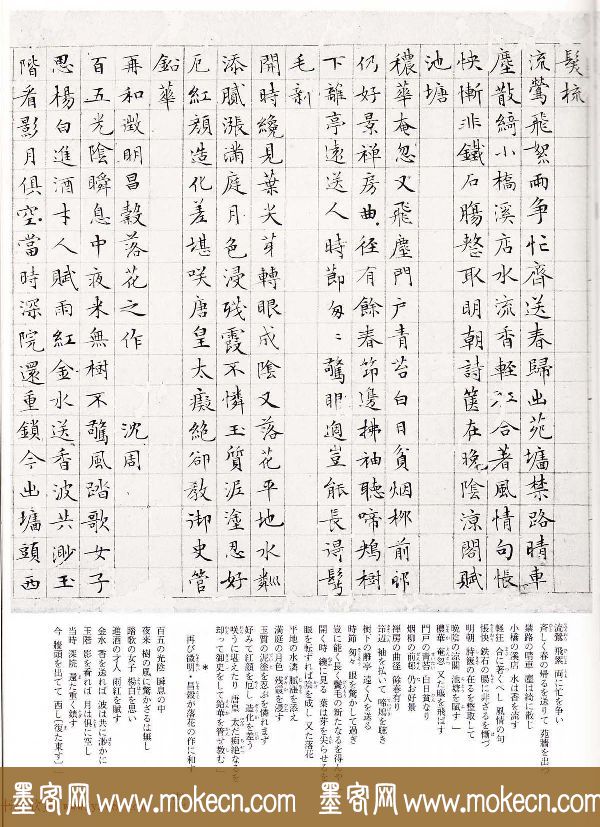 髮梳
流鶯飛絮兩争忙齊送春歸出苑墻禁路晴車
塵散綺小橋溪店水流香輕狂合著風情句悵
快慚非鐵石腸整取明朝詩篋在晚陰涼閣賦
池塘
穠華奄忽又飛塵門戶青苔白日貧烟柳前邨
仍好景禅房曲径有餘春笻邊拂袖聽啼鴂樹
下離亭遠送人時節匆〻驚眼過豈能長得鬢
毛新
開時纔見葉尖芽轉眼成陰又落花平地水粼
添膩漲滿庭月色浸殘霞不憐玉質泥塗忍好
厄紅顏造化差堪咲唐皇太癡絕卻教御史管
鉛華
再和徵明昌穀落花之作 沈周
百五光陰瞬息中夜来無樹不驚風踏歌女子
思楊白進酒才人賦雨紅金水送香波共渺玉
階看影月俱空當時深院還重鎖今出墻頭西
流鶯 飛絮 両に忙を争い
斉しく春の帰るを送りて 苑牆を出づ
禁路の晴車 塵は綺に散じ
小橋の溪店 水は香を流す
軽狂 合に著くべし 風情の句
悵怏 鉄石の腸に非ざるを慚づ
明朝 詩篋の在るを整取して
晩陰の涼閣 池塘を賦す
穠華 奄忽 又た塵を飛ばす
門戸の青苔 白日貧なり
烟柳の前邨 仍お好景
禅房の曲径 餘春有り
笻辺 袖を払いて 啼鴂を聴き
樹下の離亭 遠く人を送る
時節 匆々 眼を驚かして過ぎ
豈に能く長く鬢毛の新たなるを得んや
開く時 纔に見る 葉は芽を尖らせるを
眼を転ずれば陰を成し 又た落花
平地の水粼 膩漲を添え
満庭の月色 残霞を浸す
玉質の泥塗を忍ぶを憐れまず
好みて紅顔を厄し 造化を差う
咲うに堪えたり 唐皇 太だ痴絶なるを
却って御史をして鉛華を管せ教む
再び徴明・昌穀が落花の作に和す
百五の光陰 瞬息の中
夜来 樹の風に驚かざるは無し
踏歌の女子 楊白を思い
進酒の才人 雨紅を賦す
金水 香を送れば 波は共に渺かに
玉階 影を看れば 月は俱に空し
当時 深院 還た重く鎖す
今 牆頭を出でて 西し
墨客网 www.mokecn.com 墨客网 www.mokecn.com